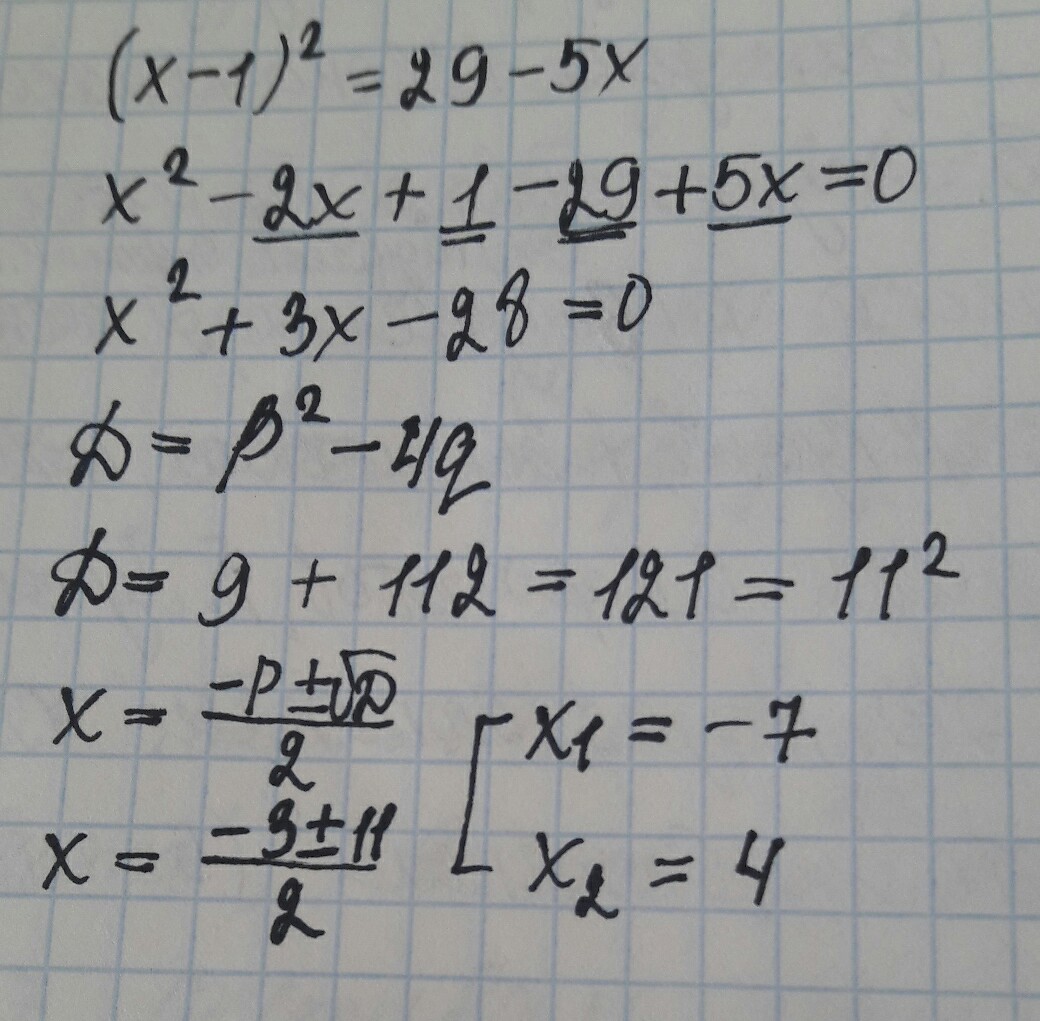 (x-1)² = 29 - 5x
x² - 2x + 1 - 29 + 5x = 0
x² + 3x - 28 = 0
D = p² - 4q
D = 9 + 112 = 121 = 11²
x = (-p ± √D)/2 [ x₁ = -7
x = (-3 ± 11)/2 x₂ = 4